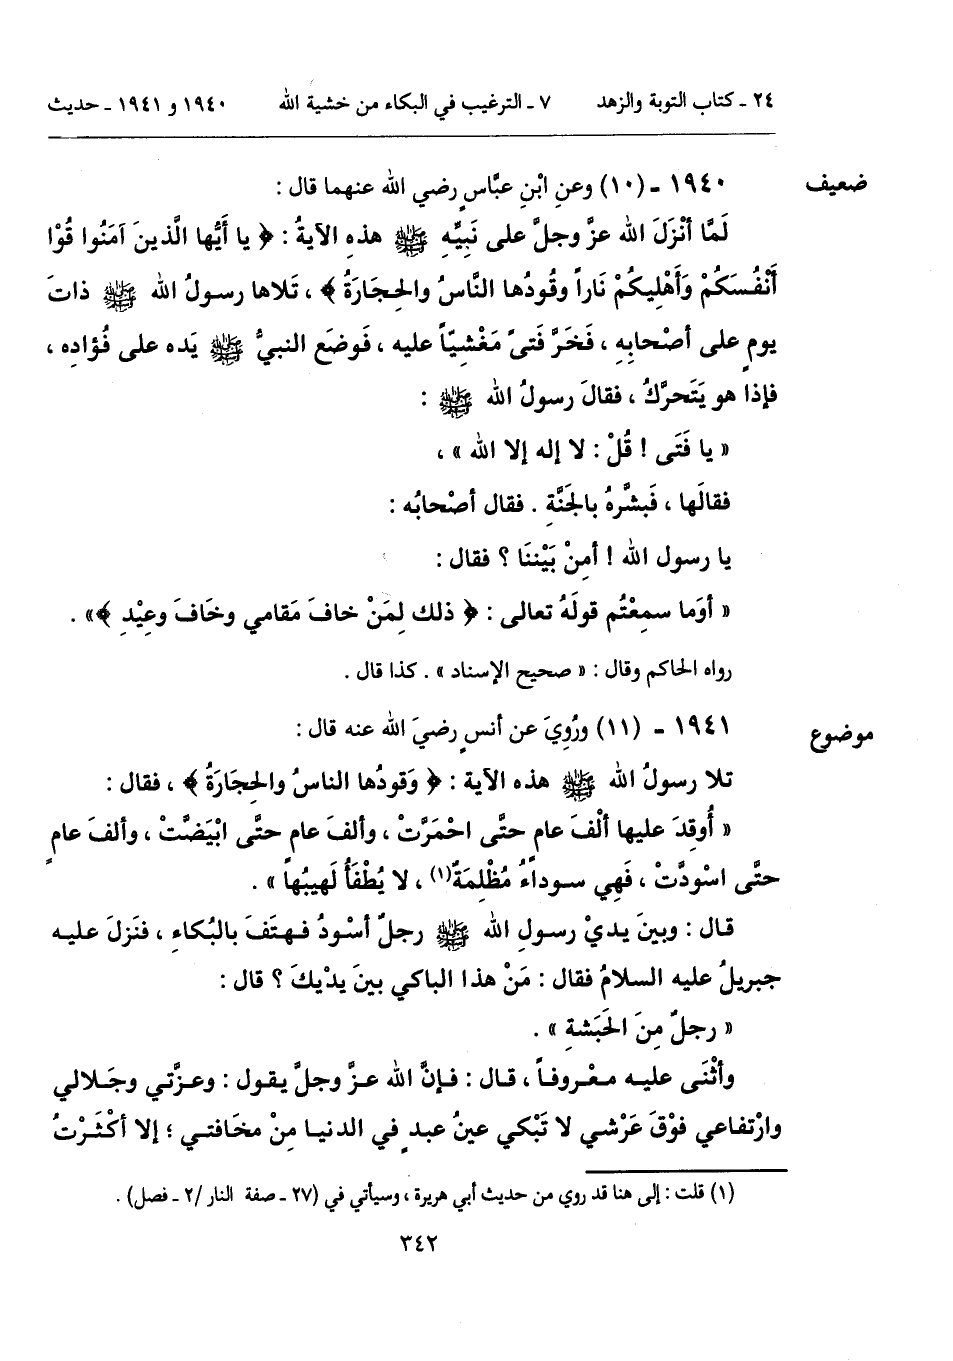 ٢٤ ـ كتاب التوبة والزهد ٧ ـ الترغيب في البكاء من خشية الله ١٩٤٠ و ١٩٤١ ـ حديث
ضعيف ١٩٤٠ ـ (١٠) وعنِ ابْنِ عبَّاسٍ رضي الله عنهما قال :
لَمَّا أنْزَلَ الله عزَّ وجلَّ على نَبِيِّهِ ﷺ هذهِ الآيةُ : ﴿ يا أيُّها الَّذينَ آمَنُوا قُوْا
أَنْفُسَكُمْ وَأَهْلِيكُمْ نَاراً وقُودُها النَّاسُ والحِجَارَةُ ﴾ ، تَلاها رسولُ الله ﷺ ذاتَ
يومٍ على أصْحابِهِ ، فَخَرَّ فَتىً مَغْشِيّاً عليه ، فَوضَع النبيُّ ﷺ يَده على فُؤادِه ،
فإذا هو يَتَحرَّكُ ، فقالَ رسولُ الله ﷺ :
« يا فَتَى ! قُلْ : لا إله إلا الله » ،
فقالَها ، فَبشَّرهُ بالجَنَّةِ . فقال أصْحابُه :
يا رسول الله ! أمِنْ بَيْننَا ؟ فقال :
« أوَما سمِعْتُم قولَهُ تعالى : ﴿ ذلك لِمَنْ خافَ مَقامي وخَافَ وعِيْدِ ﴾» .
رواه الحاكم وقال : « صحيح الإسناد » . كذا قال .
موضوع ١٩٤١ ـ (١١) ورُوِيَ عن أنسٍ رضيَ الله عنه قال :
تلا رسولُ الله ﷺ هذه الآية : ﴿ وَقودُها الناسُ والحِجَارَةُ ﴾ ، فقال :
« أُوقِدَ عليها ألْفَ عامٍ حتَّى احْمَرَّتْ ، وألفَ عام حتَّى ابْيَضَّتْ ، وألفَ عامٍ
حتَّى اسْودَّتْ ، فَهِي سوداءُ مُظْلِمَةٌ(١) ، لا يُطْفَأُ لَهيبُها » .
قال : وبينَ يديْ رسولِ الله ﷺ رجلٌ أسْودُ فهتَفَ بالبُكاءِ ، فنَزلَ عليه
جبريلُ عليه السلامُ فقال : مَنْ هذا الباكي بينَ يدْيكَ ؟ قال :
« رجلٌ مِنَ الحَبَشةِ » .
وأثْنَى عليه معْروفاً ، قال : فإنَّ الله عزَّ وجلَّ يقول : وعزَّتي وجَلالي
وارْتفاعي فوْقَ عَرْشي لا تَبْكي عينُ عبدٍ في الدنيا مِنْ مخَافتي ؛ إلا أكْثَرْتُ
(١) قلت : إلى هنا قد روي من حديث أبي هريرة ، وسيأتي في (٢٧ ـ صفة النار /٢ ـ فصل) .
٣٤٢